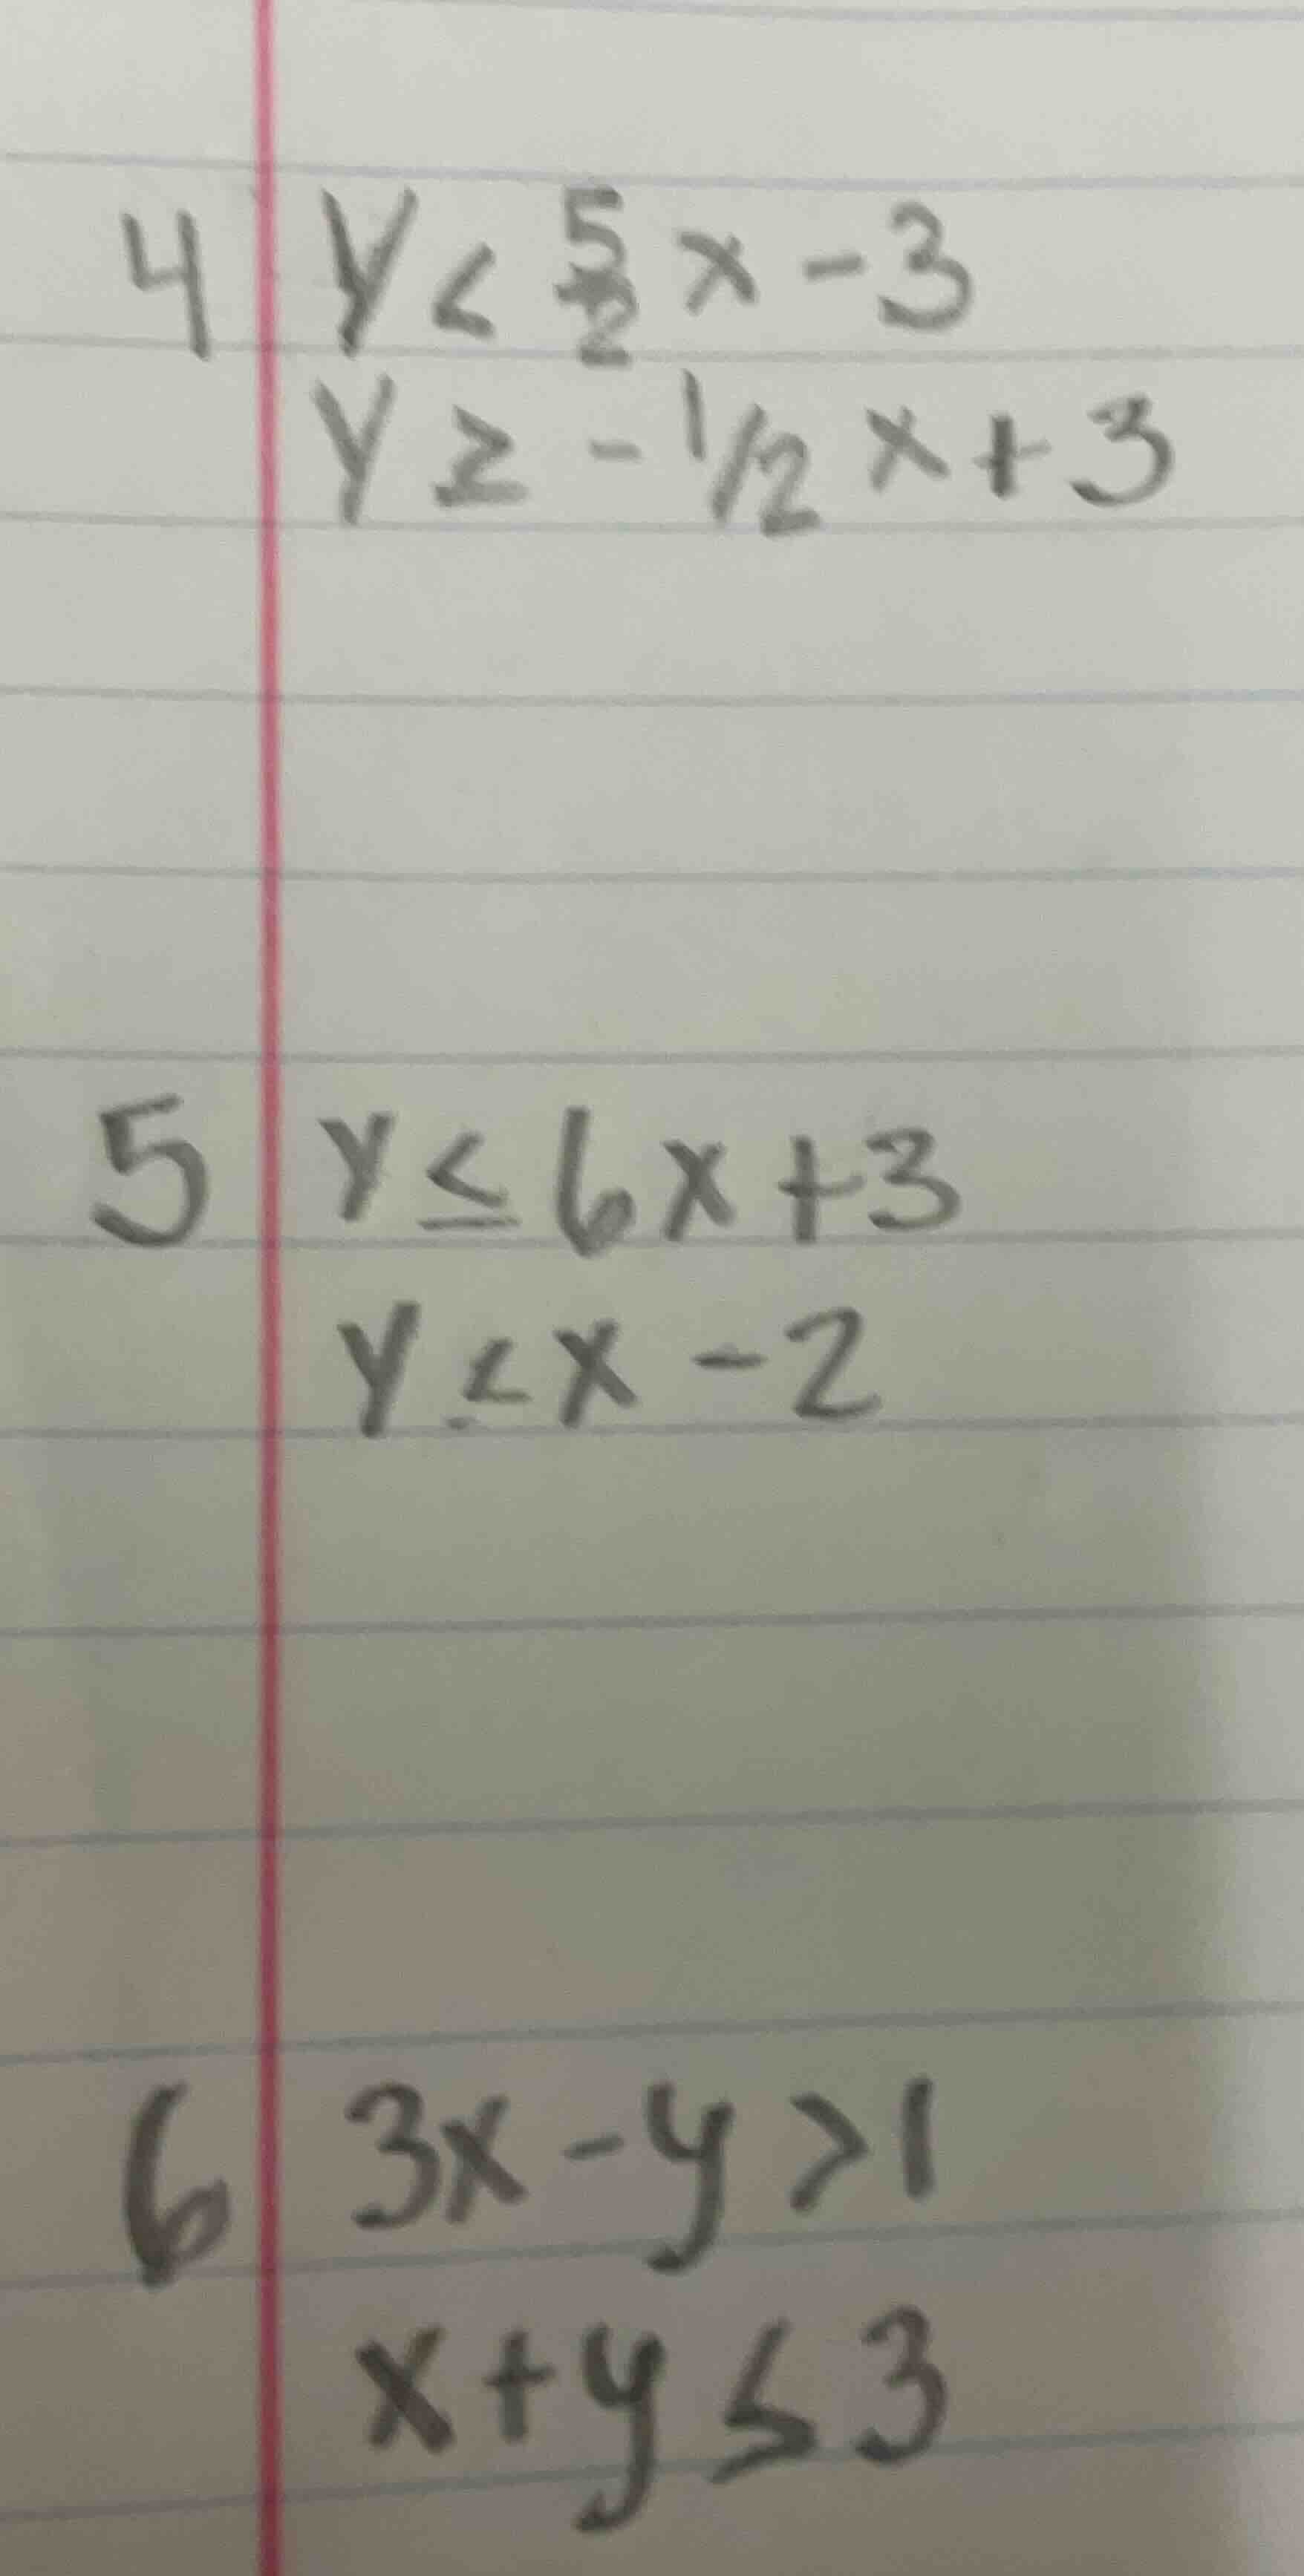 4 y < 5/2 x - 3
y ≥ - 1/2 x + 3
5 y ≤ 6x + 3
y ≤ x - 2
6 3x - y > 1
x + y ≤ 3